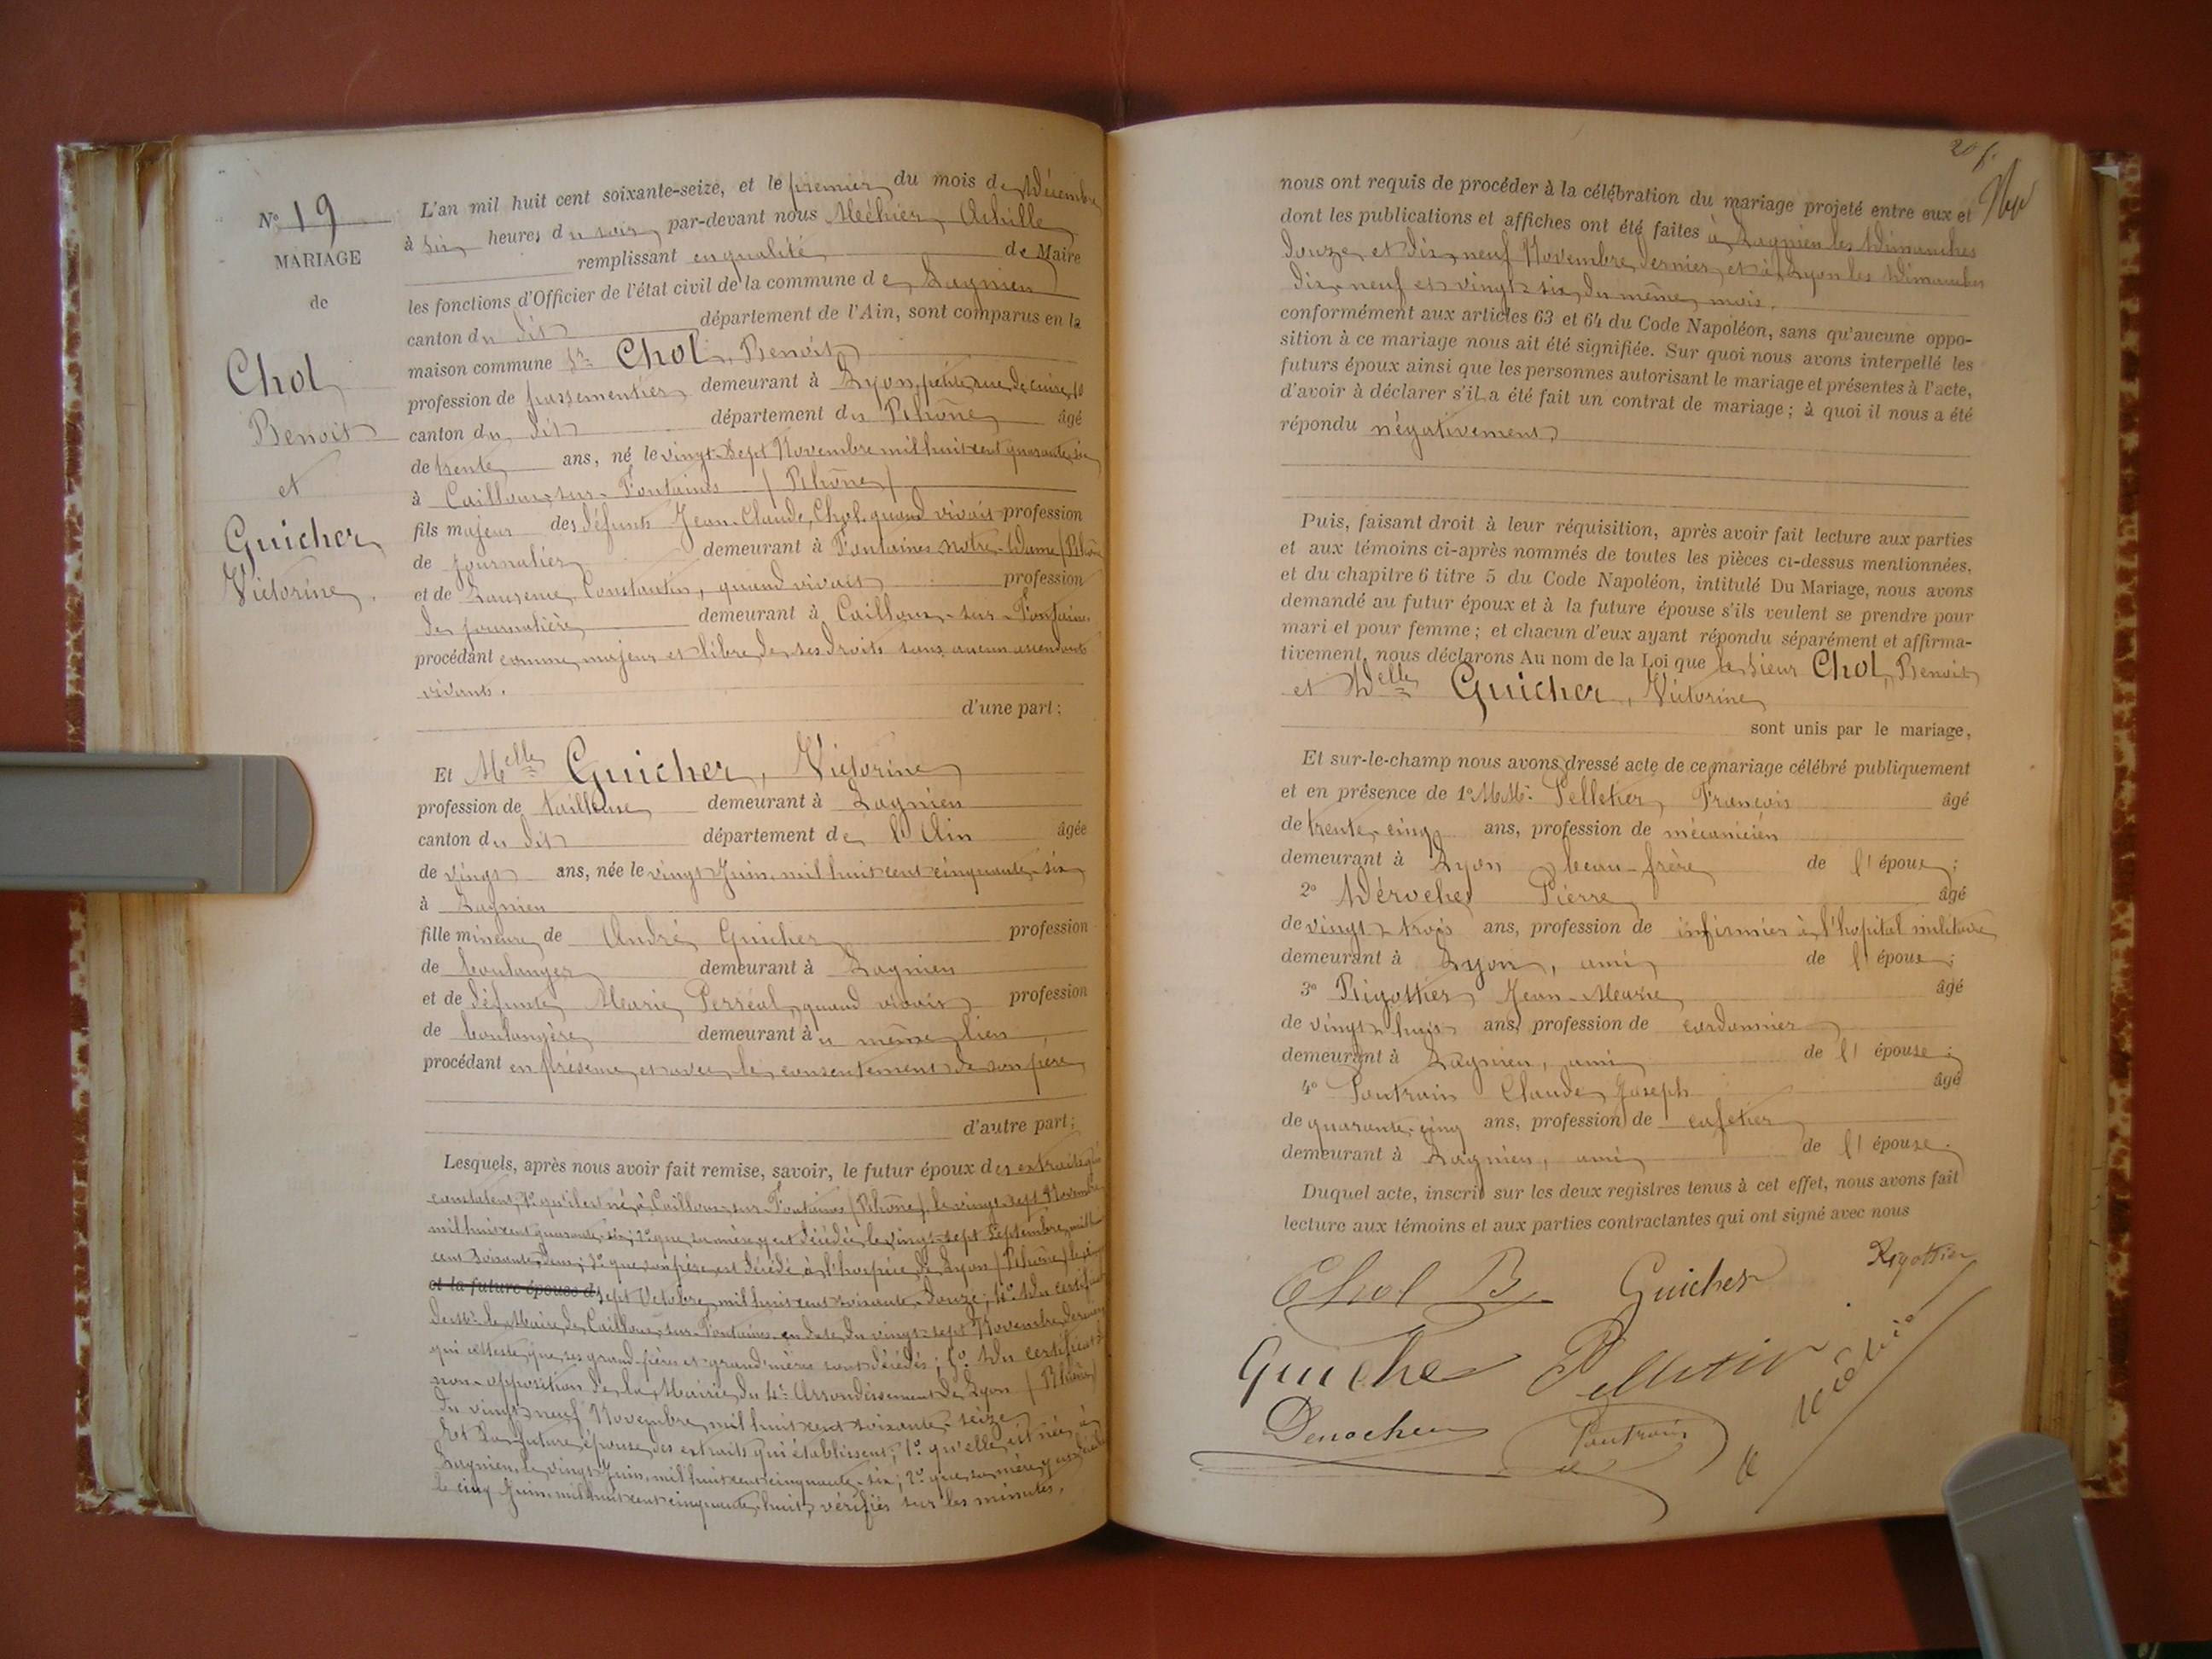 N° 19
MARIAGE
de
Chol
Benoit
et
Guicher
Victorine.
L'an mil huit cent soixante-seize, et le premier du mois de Décembre
à six heures du soir par-devant nous Méhier, Achille
remplissant en qualité de Maire
les fonctions d'Officier de l'état civil de la commune de Lagnieu
canton du dit département de l'Ain, sont comparus en la
maison commune Sr. Chol, Benoit
profession de passementier demeurant à Lyon, petite rue de cuire, 10
canton du dit département du Rhône âgé
de trente ans, né le vingt-sept Novembre mil huit cent quarante-six
à Cailloux-sur-Fontaines (Rhône)
fils majeur des défunts Jean-Claude Chol quand vivait profession
de journalier demeurant à Fontaines Notre-Dame (Rhône
et de Constantin, quand vivait profession
de journalière demeurant à Cailloux-sur-Fontaines
procédant comme majeur et libre de ses droits sans aucun ascendants
vivants.
d'une part;
Et Melle Guicher, Victorine
profession de tailleuse demeurant à Lagnieu
canton du dit département de l'Ain âgée
de vingt ans, née le vingt Juin mil huit cent cinquante-six
à Lagnieu
fille mineure de André Guicher profession
de boulanger demeurant à Lagnieu
et de défunte Marie Perréal, quand vivait profession
de boulangère demeurant au même lieu
procédant en présence et avec le consentement de son père
d'autre part;
Lesquels, après nous avoir fait remise, savoir, le futur époux des extraits qui
constatent, 1° qu'il est né à Cailloux-sur-Fontaines (Rhône) le vingt-sept Novembre
mil huit cent quarante-six; 2° que sa mère y est décédée le vingt-sept Septembre mil huit
cent soixante-deux; 3° que son père est décédé à l'hospice de Lyon (Rhône) le
et la future épouse d sept Octobre mil huit cent soixante-douze; 4° Du certificat
de Mr. le Maire de Cailloux-sur-Fontaines en date du vingt-sept Novembre dernier
qui atteste que ses grand-pères et grand'mères sont décédés; 5° Du certificat de
non-opposition de la Mairie du 4e Arrondissement de Lyon (Rhône)
du vingt-neuf Novembre mil huit cent soixante-seize
Et la future épouse, des extraits qui établissent, 1° qu'elle est née à
Lagnieu, le vingt Juin mil huit cent cinquante-six; 2° que sa mère y est décédée
le cinq Juin mil huit cent cinquante-huit, vérifiés sur les minutes.
nous ont requis de procéder à la célébration du mariage projeté entre eux et
dont les publications et affiches ont été faites à Lagnieu les Dimanches
douze et dix-neuf Novembre dernier, et à Lyon les Dimanches
dix-neuf et vingt-six du même mois.
conformément aux articles 63 et 64 du Code Napoléon, sans qu'aucune oppo-
sition à ce mariage nous ait été signifiée. Sur quoi nous avons interpellé les
futurs époux ainsi que les personnes autorisant le mariage et présentes à l'acte,
d'avoir à déclarer s'il a été fait un contrat de mariage; à quoi il nous a été
répondu négativement
Puis, faisant droit à leur réquisition, après avoir fait lecture aux parties
et aux témoins ci-après nommés de toutes les pièces ci-dessus mentionnées,
et du chapitre 6 titre 5 du Code Napoléon, intitulé Du Mariage, nous avons
demandé au futur époux et à la future épouse s'ils veulent se prendre pour
mari et pour femme; et chacun d'eux ayant répondu séparément et affirma-
tivement, nous déclarons Au nom de la Loi que le sieur Chol, Benoit
et Delle Guicher, Victorine
sont unis par le mariage,
Et sur-le-champ nous avons dressé acte de ce mariage célébré publiquement
et en présence de 1° MM. Pelletier, François âgé
de trente-cinq ans, profession de mécanicien
demeurant à Lyon beau-frère de l'époux;
2° Dérocher Pierre âgé
de vingt-trois ans, profession de infirmier à l'hopital militaire
demeurant à Lyon, ami de l'époux;
3° Rigottier Jean-Marie âgé
de vingt-huit ans, profession de cordonnier
demeurant à Lagnieu, ami de l'épouse;
4° Poutrain Claude Joseph âgé
de quarante-cinq ans, profession de cafetier
demeurant à Lagnieu, ami de l'épouse.
Duquel acte, inscrit sur les deux registres tenus à cet effet, nous avons fait
lecture aux témoins et aux parties contractantes qui ont signé avec nous
Chol B Guicher Rigottier
Guicher Pelletier
Poutrain